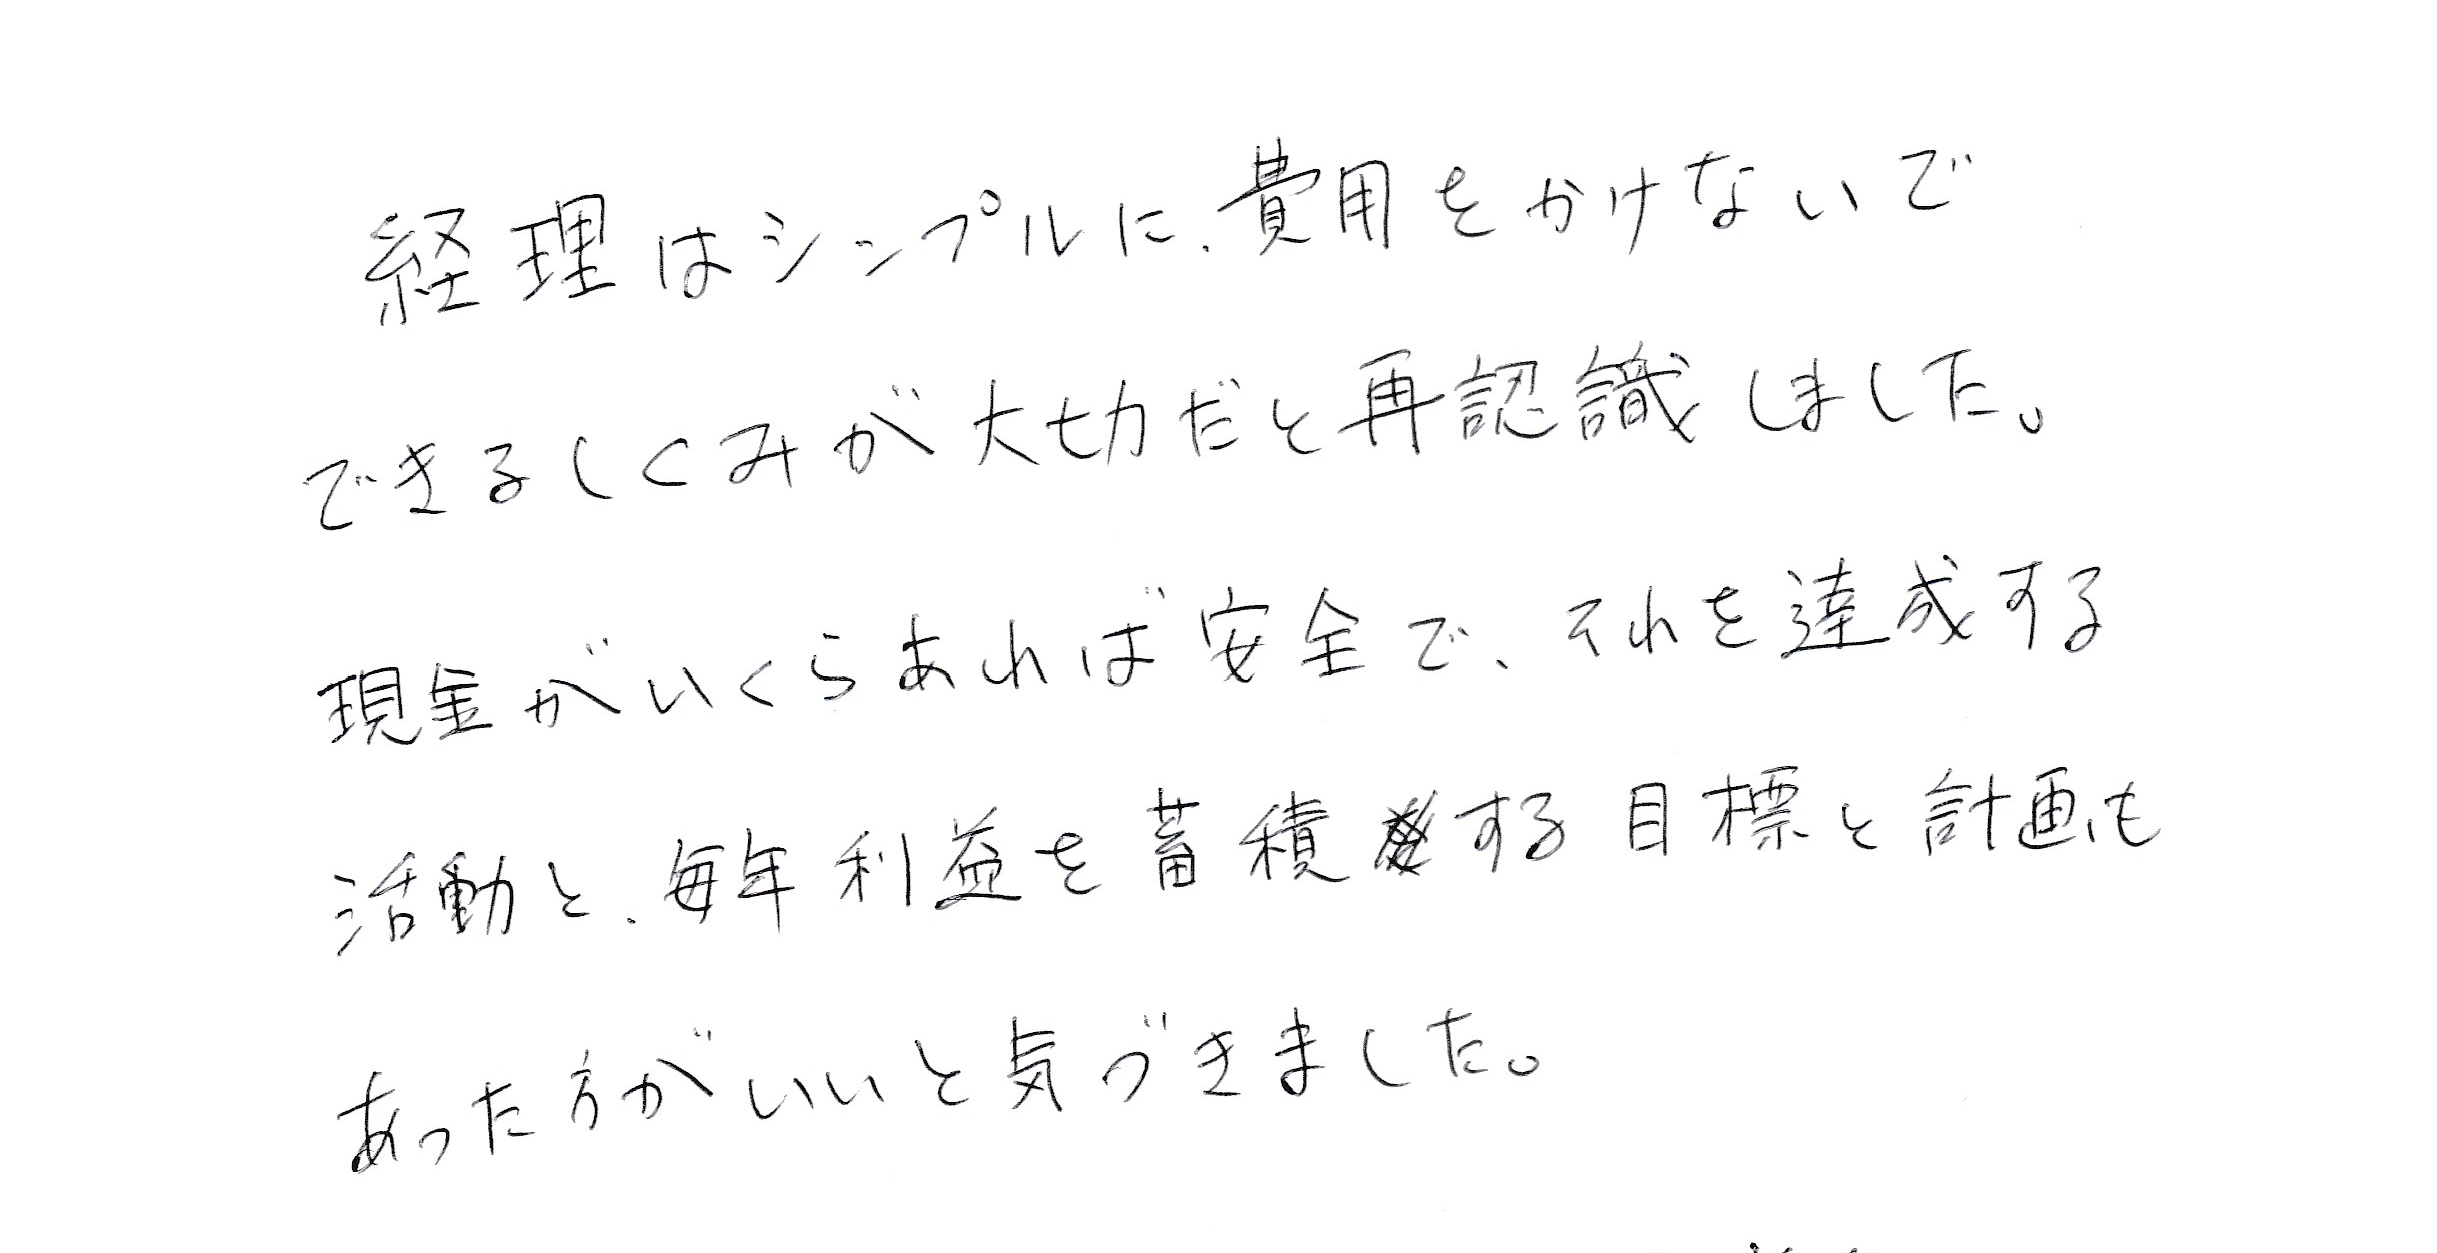 経理はシンプルに、費用をかけないで
できるしくみが大切だと再認識しました。
現金がいくらあれば安全で、それを達成する
活動と、毎年利益を蓄積する目標と計画も
あった方がいいと気づきました。